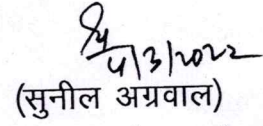 4/3/2022
(सुनील अग्रवाल)